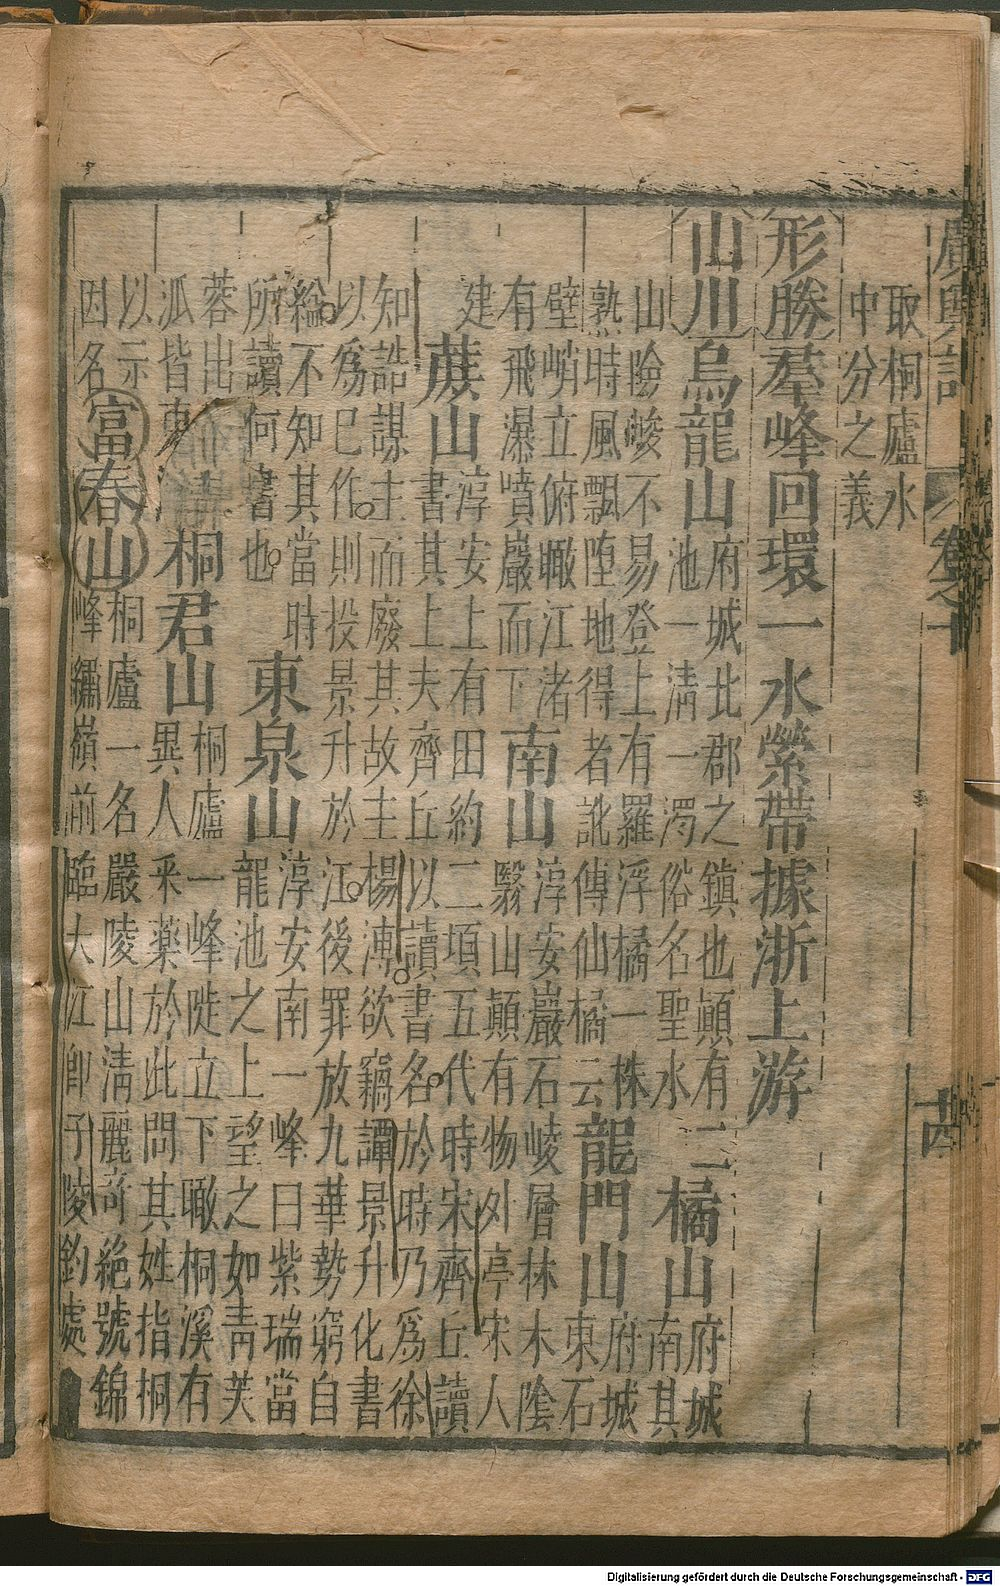 廣輿記 卷之十 十四
取桐廬水
中分之義
形勝 羣峰回環一水縈帶據浙上游
山川 烏龍山 府城北郡之鎮也顛有二
池一清一濁俗名聖水 橘山 府城
南其
山險峻不易登上有羅浮橘一株
熟時風飄堕地得者訛傳仙橘云 龍門山 府城
東石
壁峭立俯瞰江渚
有飛瀑噴巖而下 南山 淳安巖石崚層林木陰
翳山顛有物外亭宋人
建 蔗山 淳安上有田約二頃五代時宋齊丘讀
書其上夫齊丘以讀書名於時乃爲徐
知誥謀主而廢其故主楊溥欲竊譚景升化書
以爲巳作則投景升於江後罪放九華勢窮自
縊不知其當時
所讀何書也 東泉山 淳安南一峰曰紫瑞當
龍池之上望之如靑芙
蓉出
泒皆 桐君山 桐廬一峰陡立下瞰桐溪有
異人采藥於此問其姓指桐
以示
因名 富春山 桐廬一名嚴陵山清麗奇絶號錦
峰繡嶺前臨大江卽子陵釣處
Digitalisierung gefördert durch die Deutsche Forschungsgemeinschaft - DFG